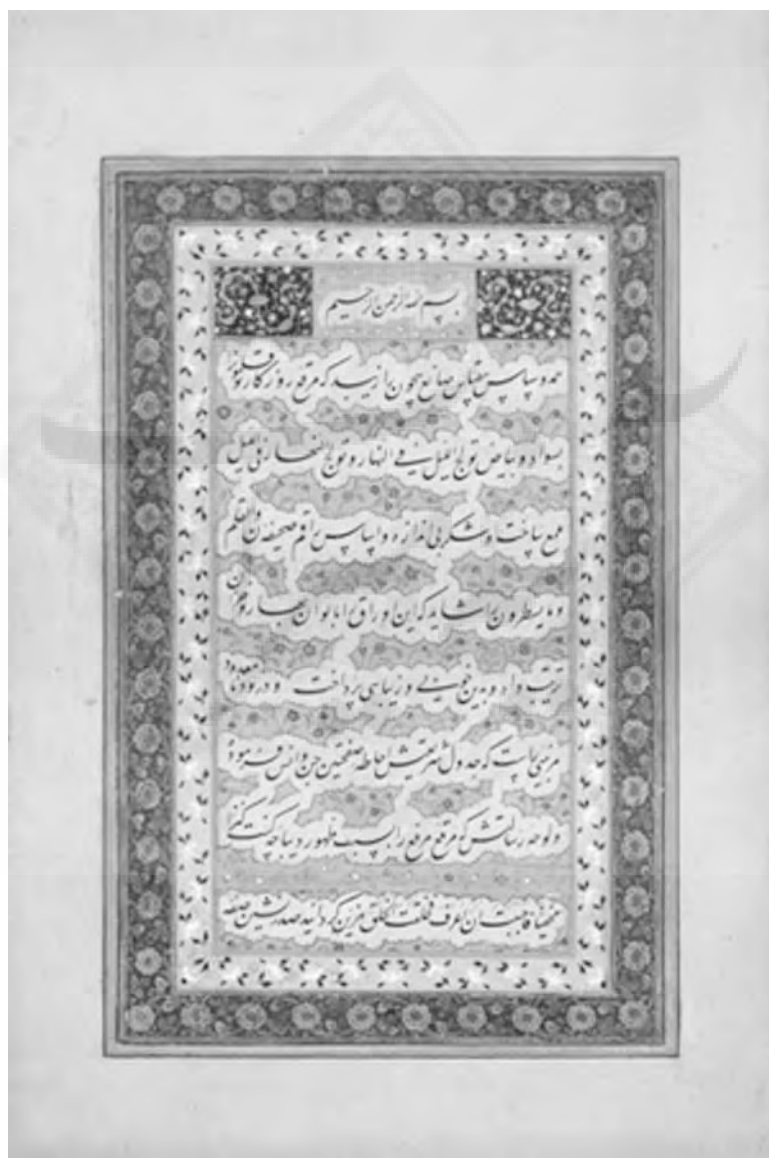 بسم الله الرحمن الرحیم
حمد و سپاس بیقیاس صانع بیچون را زیبد که مرقع روزگار بوقلمون
بسواد و بیاض تولج اللیل فی النهار و تولج النهار فی اللیل
جمع ساخت و شکر بی اندازه و سپاس راقم صحیفه ن والقلم
وما یسطرون را شاید که این اوراق را بالوان بهار و خزان
زیب داد و بدین خوبی و زیبایی پرداخت و درود نامعدود
مر نبیی راست که جدول شرعش احاطه صفحتین جن و انس فرموده
و لوحه رسالتش که مرقع را بسبب ظهور دیباچه کنت کنزا
مخفیا فاحببت ان اعرف فخلقت الخلق مزین گردانید صدرنشین صفه